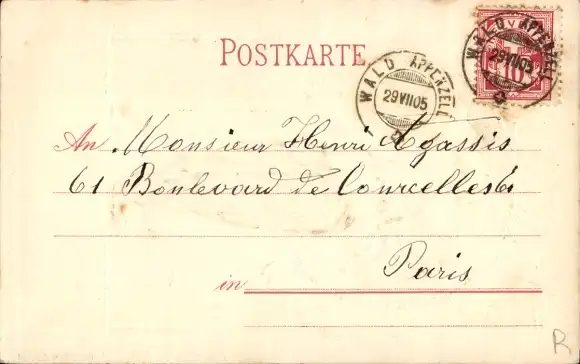 POSTKARTE
WALD APPENZELL
29 VII 05
WALD APPENZELL
29 VII 05
10
An Monsieur Henri Agassis
61 Boulevard de Courcelles 61
Paris
in
R